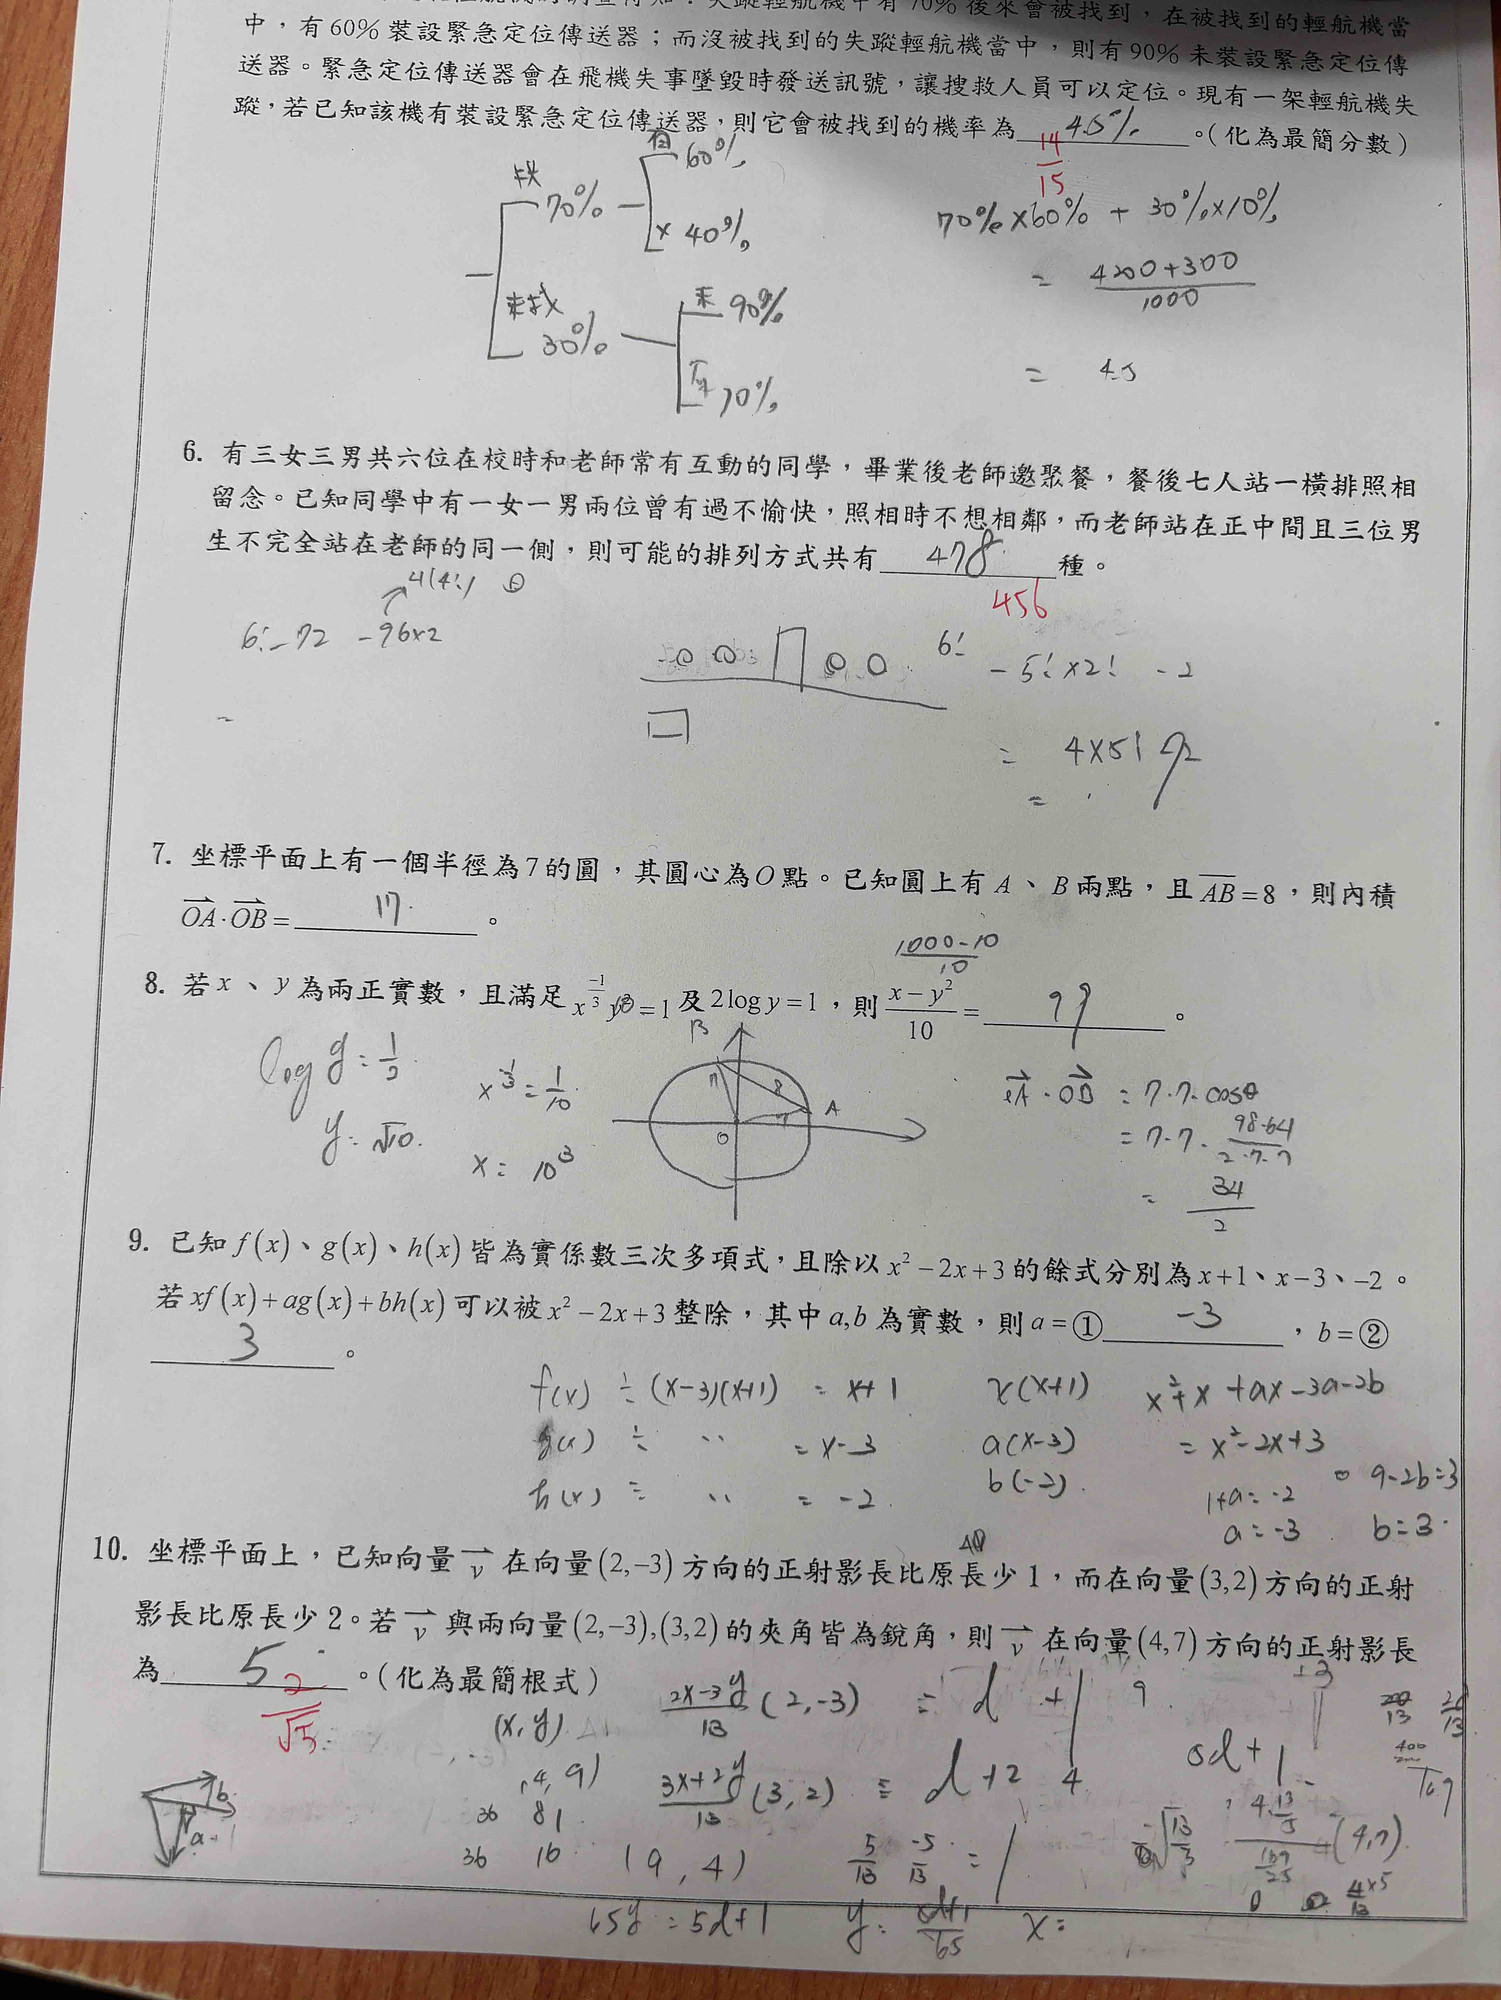 後來會被找到，在被找到的輕航機當
中，有60%裝設緊急定位傳送器；而沒被找到的失蹤輕航機當中，則有90%未裝設緊急定位傳
送器。緊急定位傳送器會在飛機失事墜毀時發送訊號，讓搜救人員可以定位。現有一架輕航機失
蹤，若已知該機有裝設緊急定位傳送器，則它會被找到的機率為 45% 。(化為最簡分數)
14/15
有 60%
找 70%
× 40%
未找 30%
未 90%
70%×60% + 30%×10%
= (4200+300)/1000
= 4.5
6. 有三女三男共六位在校時和老師常有互動的同學，畢業後老師邀聚餐，餐後七人站一橫排照相
留念。已知同學中有一女一男兩位曾有過不愉快，照相時不想相鄰，而老師站在正中間且三位男
生不完全站在老師的同一側，則可能的排列方式共有 478 種。
456
4(4!)
6!-72 -96×2
6! -5!×2! -2
= 4×5!
=
7. 坐標平面上有一個半徑為7的圓，其圓心為O點。已知圓上有A、B兩點，且AB=8，則內積
OA·OB= 17 。
(1000-10)/10
8. 若x、y為兩正實數，且滿足x^(-1/3) y²=1及2log y=1，則(x-y²)/10= 99 。
log y = 1/2
y = √10.
x^(-1/3) = 1/10
x = 10³
B
7
8
A
7
O
OA·OB = 7·7·cosθ
= 7·7·(98-64)/(2·7·7)
= 34/2
9. 已知f(x)、g(x)、h(x)皆為實係數三次多項式，且除以x²-2x+3的餘式分別為x+1、x-3、-2。
若xf(x)+ag(x)+bh(x)可以被x²-2x+3整除，其中a,b為實數，則a=① -3 ，b=②
3 。
f(x) ÷ (x-3)(x+1) = x+1
g(x) ÷ 〃 = x-3
h(x) ÷ 〃 = -2
x(x+1)
a(x-3)
b(-2)
x²+x+ax-3a-2b
= x²-2x+3
1+a=-2
a=-3
9-2b=3
b=3
10. 坐標平面上，已知向量v在向量(2,-3)方向的正射影長比原長少1，而在向量(3,2)方向的正射
影長比原長少2。若v與兩向量(2,-3),(3,2)的夾角皆為銳角，則v在向量(4,7)方向的正射影長
為 5 。(化為最簡根式)
2/√5
(x, y)
(2x-3y)/13 (2,-3) = d+1 9
(3x+2y)/13 (3,2) = d+2 4
5d+1
(4, 9)
36 81
36 16
(9, 4)
5/13 -5/13 = 1
(4,7)
65y = 5d+1
x=